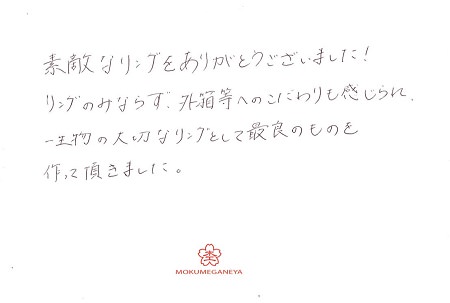 素敵なリングをありがとうございました！
リングのみならず、外箱等へのこだわりも感じられ、
一生物の大切なリングとして最良のものを
作って頂きました。
MOKUMEGANEYA